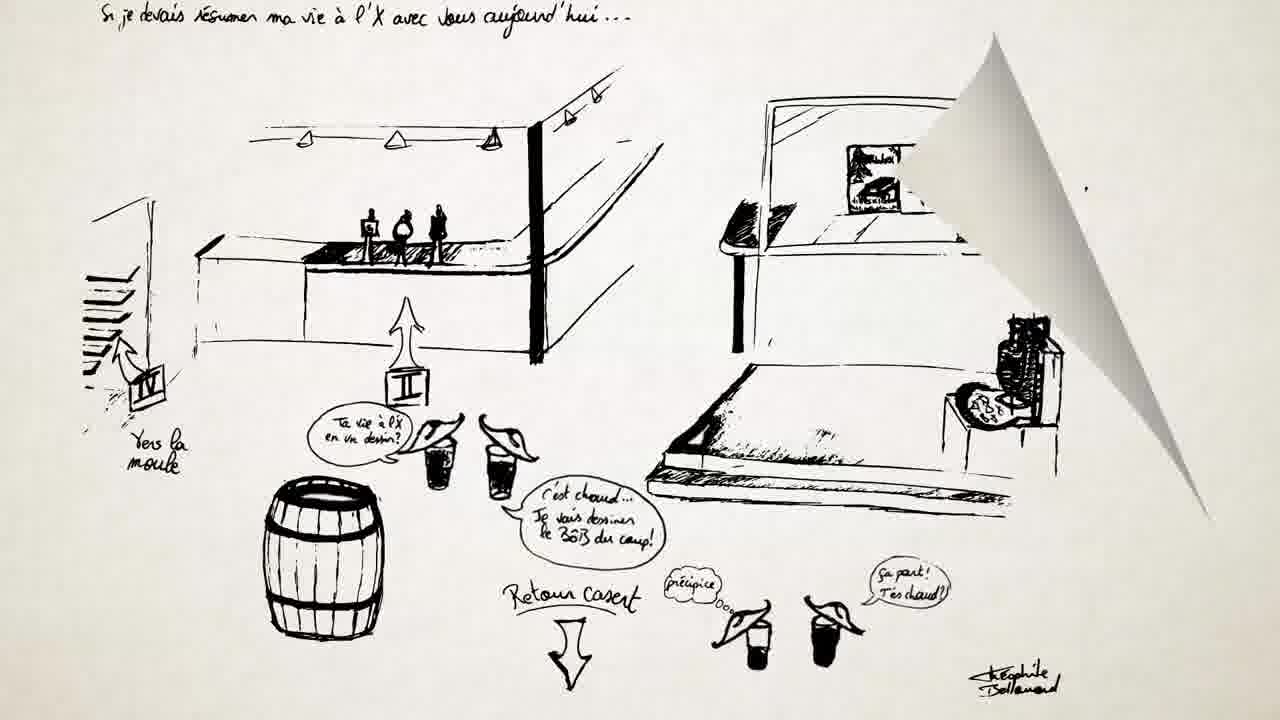 Si je devais résumer ma vie à l'X avec vous aujourd'hui...
IV
Vers la
moule
II
Ta vie à l'X
en un dessin?
C'est chaud...
Je vais dessiner
le BôB du coup!
Retour casert
précipice
ça part!
T'es chaud?
Théophile